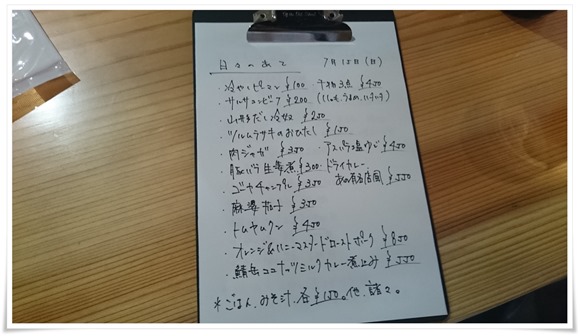 日々のあて 7月15日(日)
・冷やしピーマン ¥100 干物3点 ¥450
・サルサエンビア ¥200
・山形だし冷奴 ¥250
・ツルムラサキのおひたし ¥150
・肉ジャガ ¥350 ・アスパラ塩ゆで ¥450
・豚バラ生姜煮 ¥300 ・ドライカレー
・ゴーヤチャンプル ¥350 あの有名店風 ¥550
・麻婆 ¥350
・トムヤムクン ¥450
・オレンジ&ハニーマスタードローストポーク ¥850
・鯖缶ココナッツミルクカレー煮込み ¥550
*ごはん、みそ汁、各¥150。他、諸々。